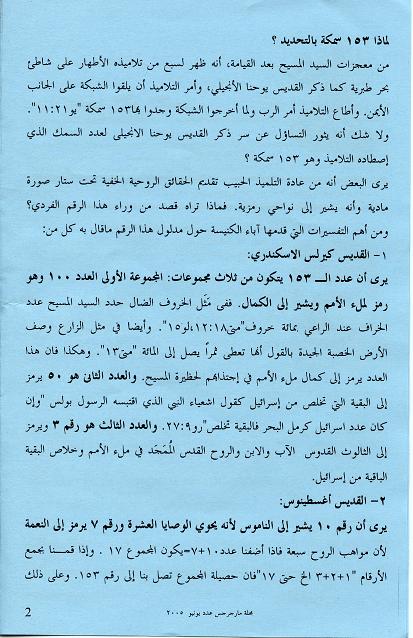 لماذا ١٥٣ سمكة بالتحديد ؟
من معجزات السيد المسيح بعد القيامة، أنه ظهر لسبع من تلاميذه الأطهار على شاطئ
بحر طبرية كما ذكر القديس يوحنا الأنجيلى، وأمر التلاميذ أن يلقوا الشبكة على الجانب
الأيمن. وأطاع التلاميذ أمر الرب ولما أخرجوا الشبكة وحدوا بها١٥٣ سمكة "يو١١:٢١".
ولا شك أنه يثور التساؤل عن سر ذكر القديس يوحنا الانجيلى لعدد السمك الذي
إصطاده التلاميذ وهو ١٥٣ سمكة ؟
يرى البعض أنه من عادة التلميذ الحبيب تقديم الحقائق الروحية الخفية تحت ستار صورة
مادية وأنه يشير إلى نواحي رمزية. فماذا تراه قصد من وراء هذا الرقم الفردي؟
ومن أهم التفسيرات التي قدمها آباء الكنيسة حول مدلول هذا الرقم ماقال به كل من:
١- القديس كيرلس الاسكندري:
يرى أن عدد الـــ ١٥٣ يتكون من ثلاث مجموعات: المجموعة الأولى العدد ١٠٠ وهو
رمز لملء الأمم ويشير إلى الكمال. ففى مَثل الخروف الضال حدد السيد المسيح عدد
الخراف عند الراعي بمائة خروف"متى١٢:١٨،لو١٥". وأيضا في مثل الزارع وصف
الأرض الخصبة الجيدة بالقول أنها تعطى ثمراً يصل إلى المائة "متى١٣". وهكذا فان هذا
العدد يرمز إلى كمال ملء الأمم في إجتذابهم لحظيرة المسيح. والعدد الثانى هو ٥٠ يرمز
إلى البقية التي تخلص من إسرائيل كقول اشعياء النبي الذي اقتبسه الرسول بولس "وإن
كان عدد اسرائيل كرمل البحر فالبقية تخلص"رو٢٧:٩. والعدد الثالث هو رقم ٣ ويرمز
إلى الثالوث القدوس الآب والابن والروح القدس الُممَجَد في ملء الأمم وخلاص البقية
الباقية من إسرائيل.
٢- القديس أغسطينوس:
يرى أن رقم ١٠ يشير إلى الناموس لأنه يحوي الوصايا العشرة ورقم ٧ يرمز إلى النعمة
لأن مواهب الروح سبعة فاذا أضفنا عدد١٠+٧=يكون المجموع ١٧ . وإذا قمــنا بجمع
الأرقام "١+٢+٣ الخ حتى ١٧"فان حصيلة المجموع تصل بنا إلى رقم ١٥٣. وعلى ذلك
مجلة مارجرجس عدد يونيو ٢٠٠٥
2